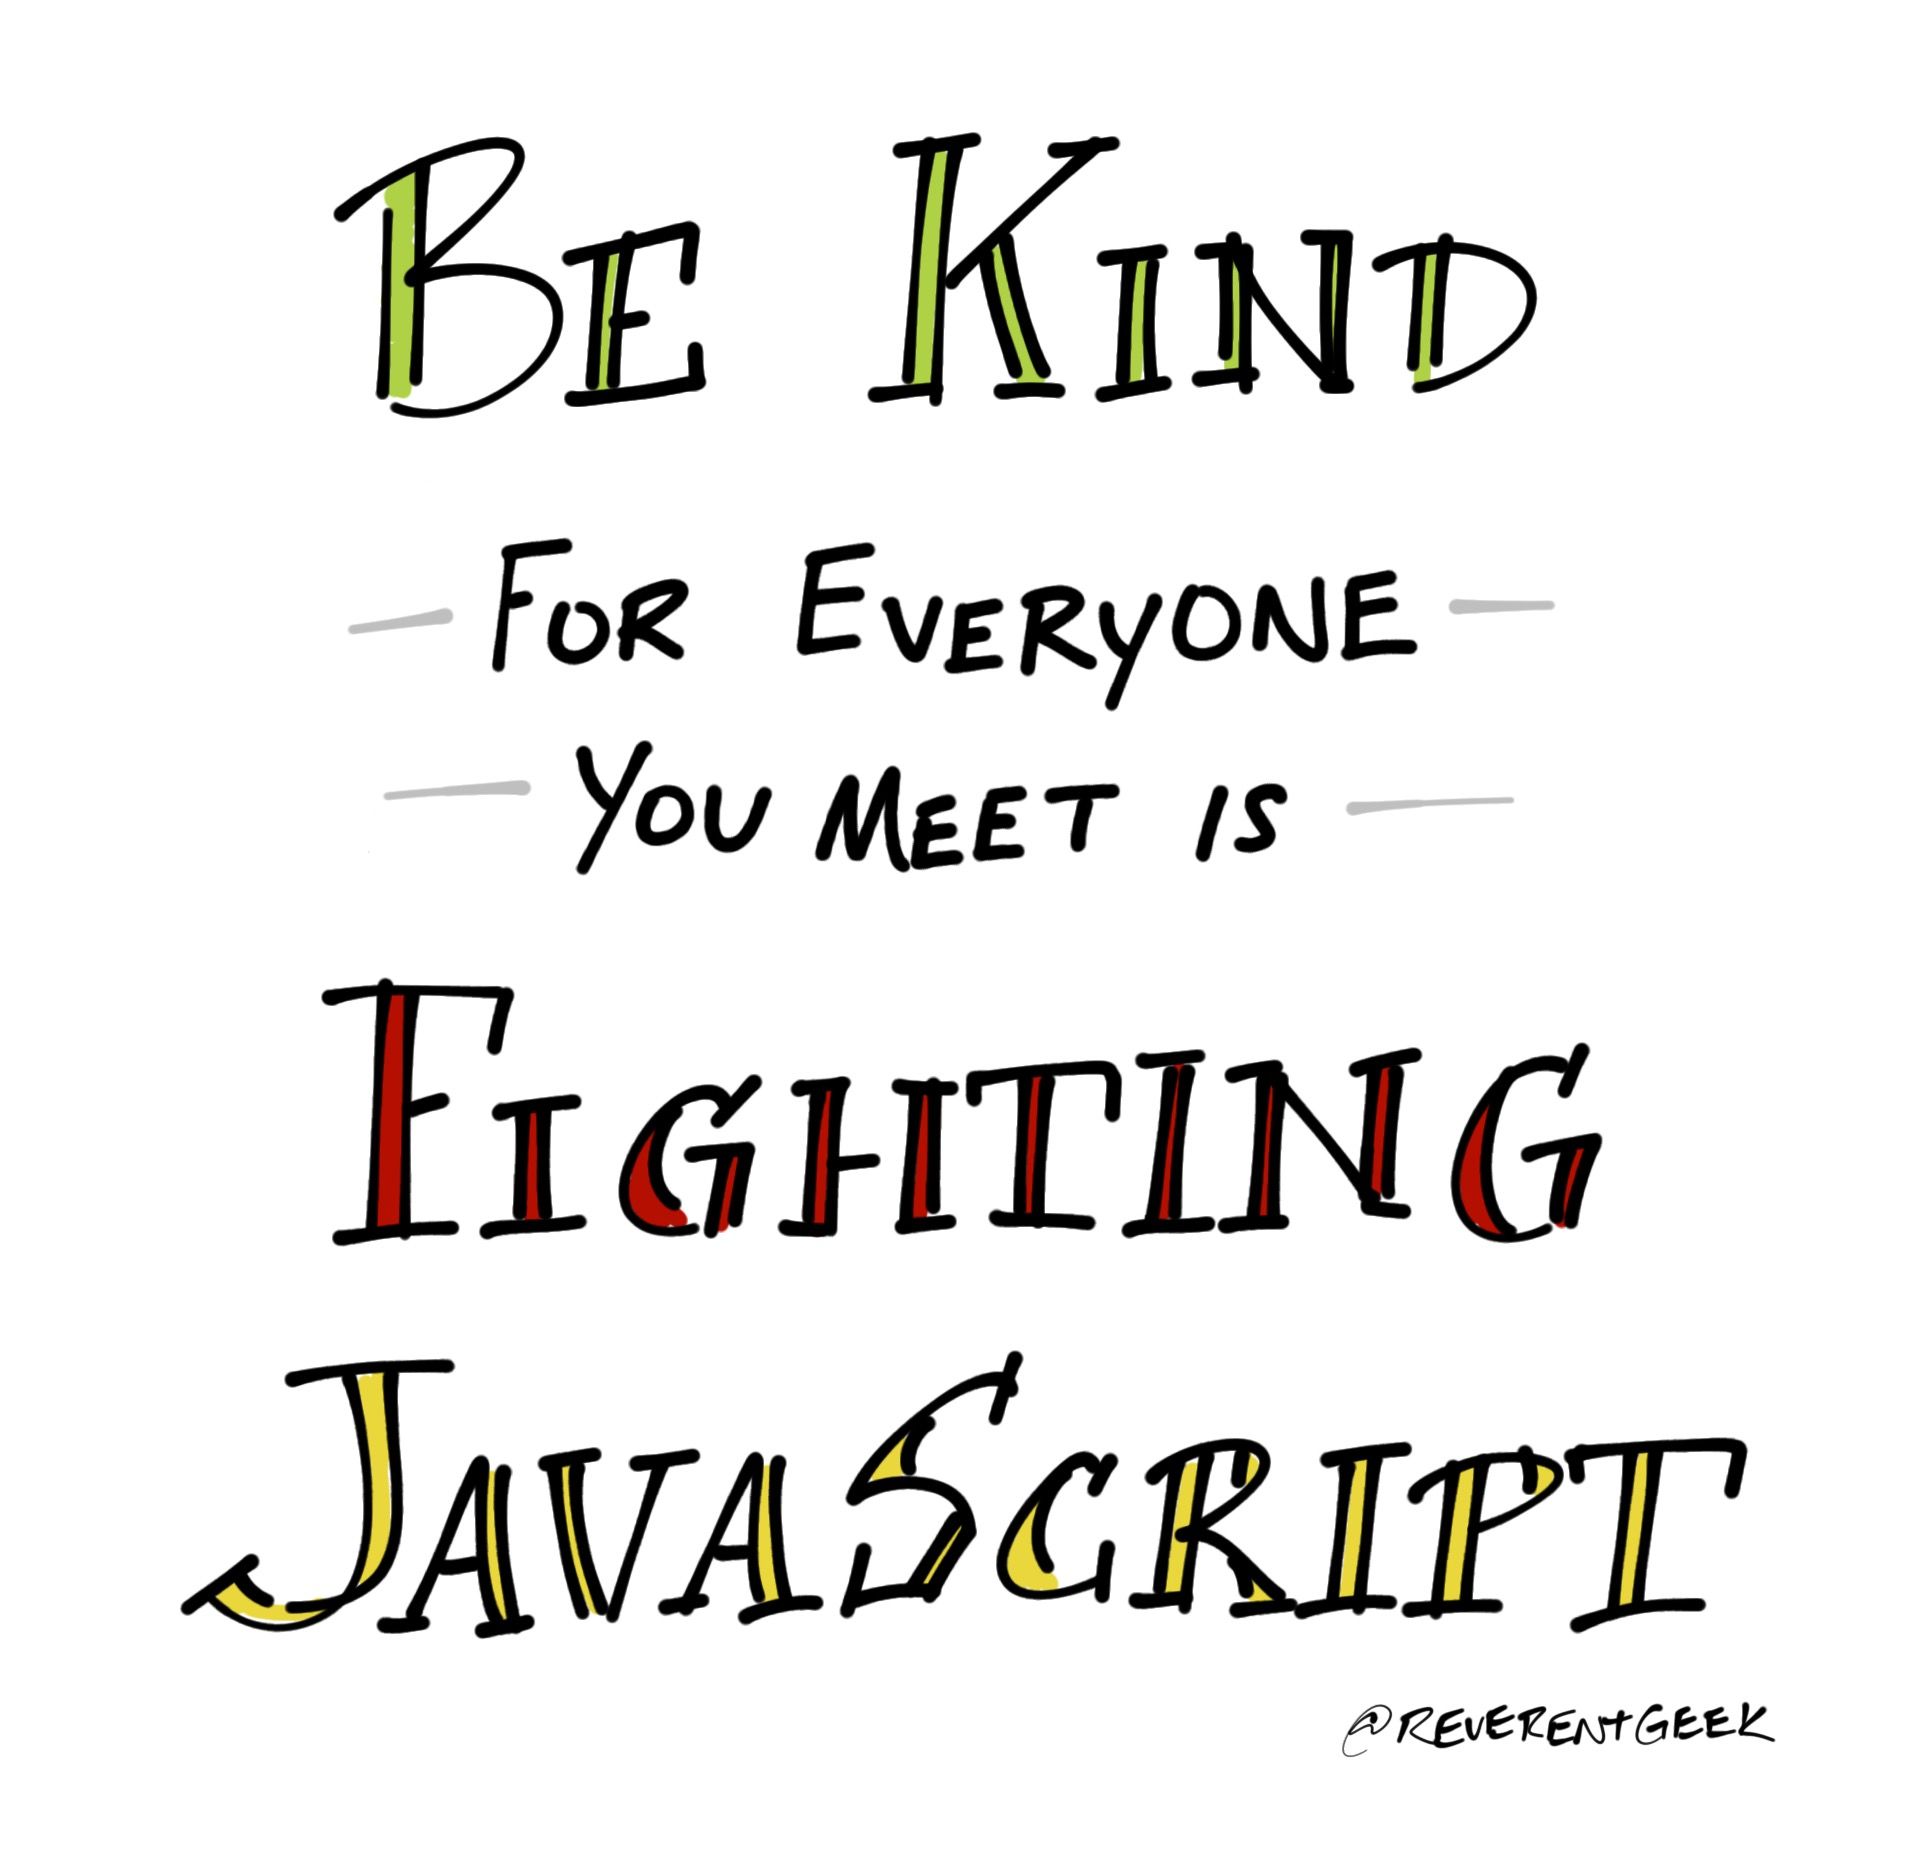 Be Kind
For Everyone
You Meet is
Fighting
JavaScript
@ReverentGeek